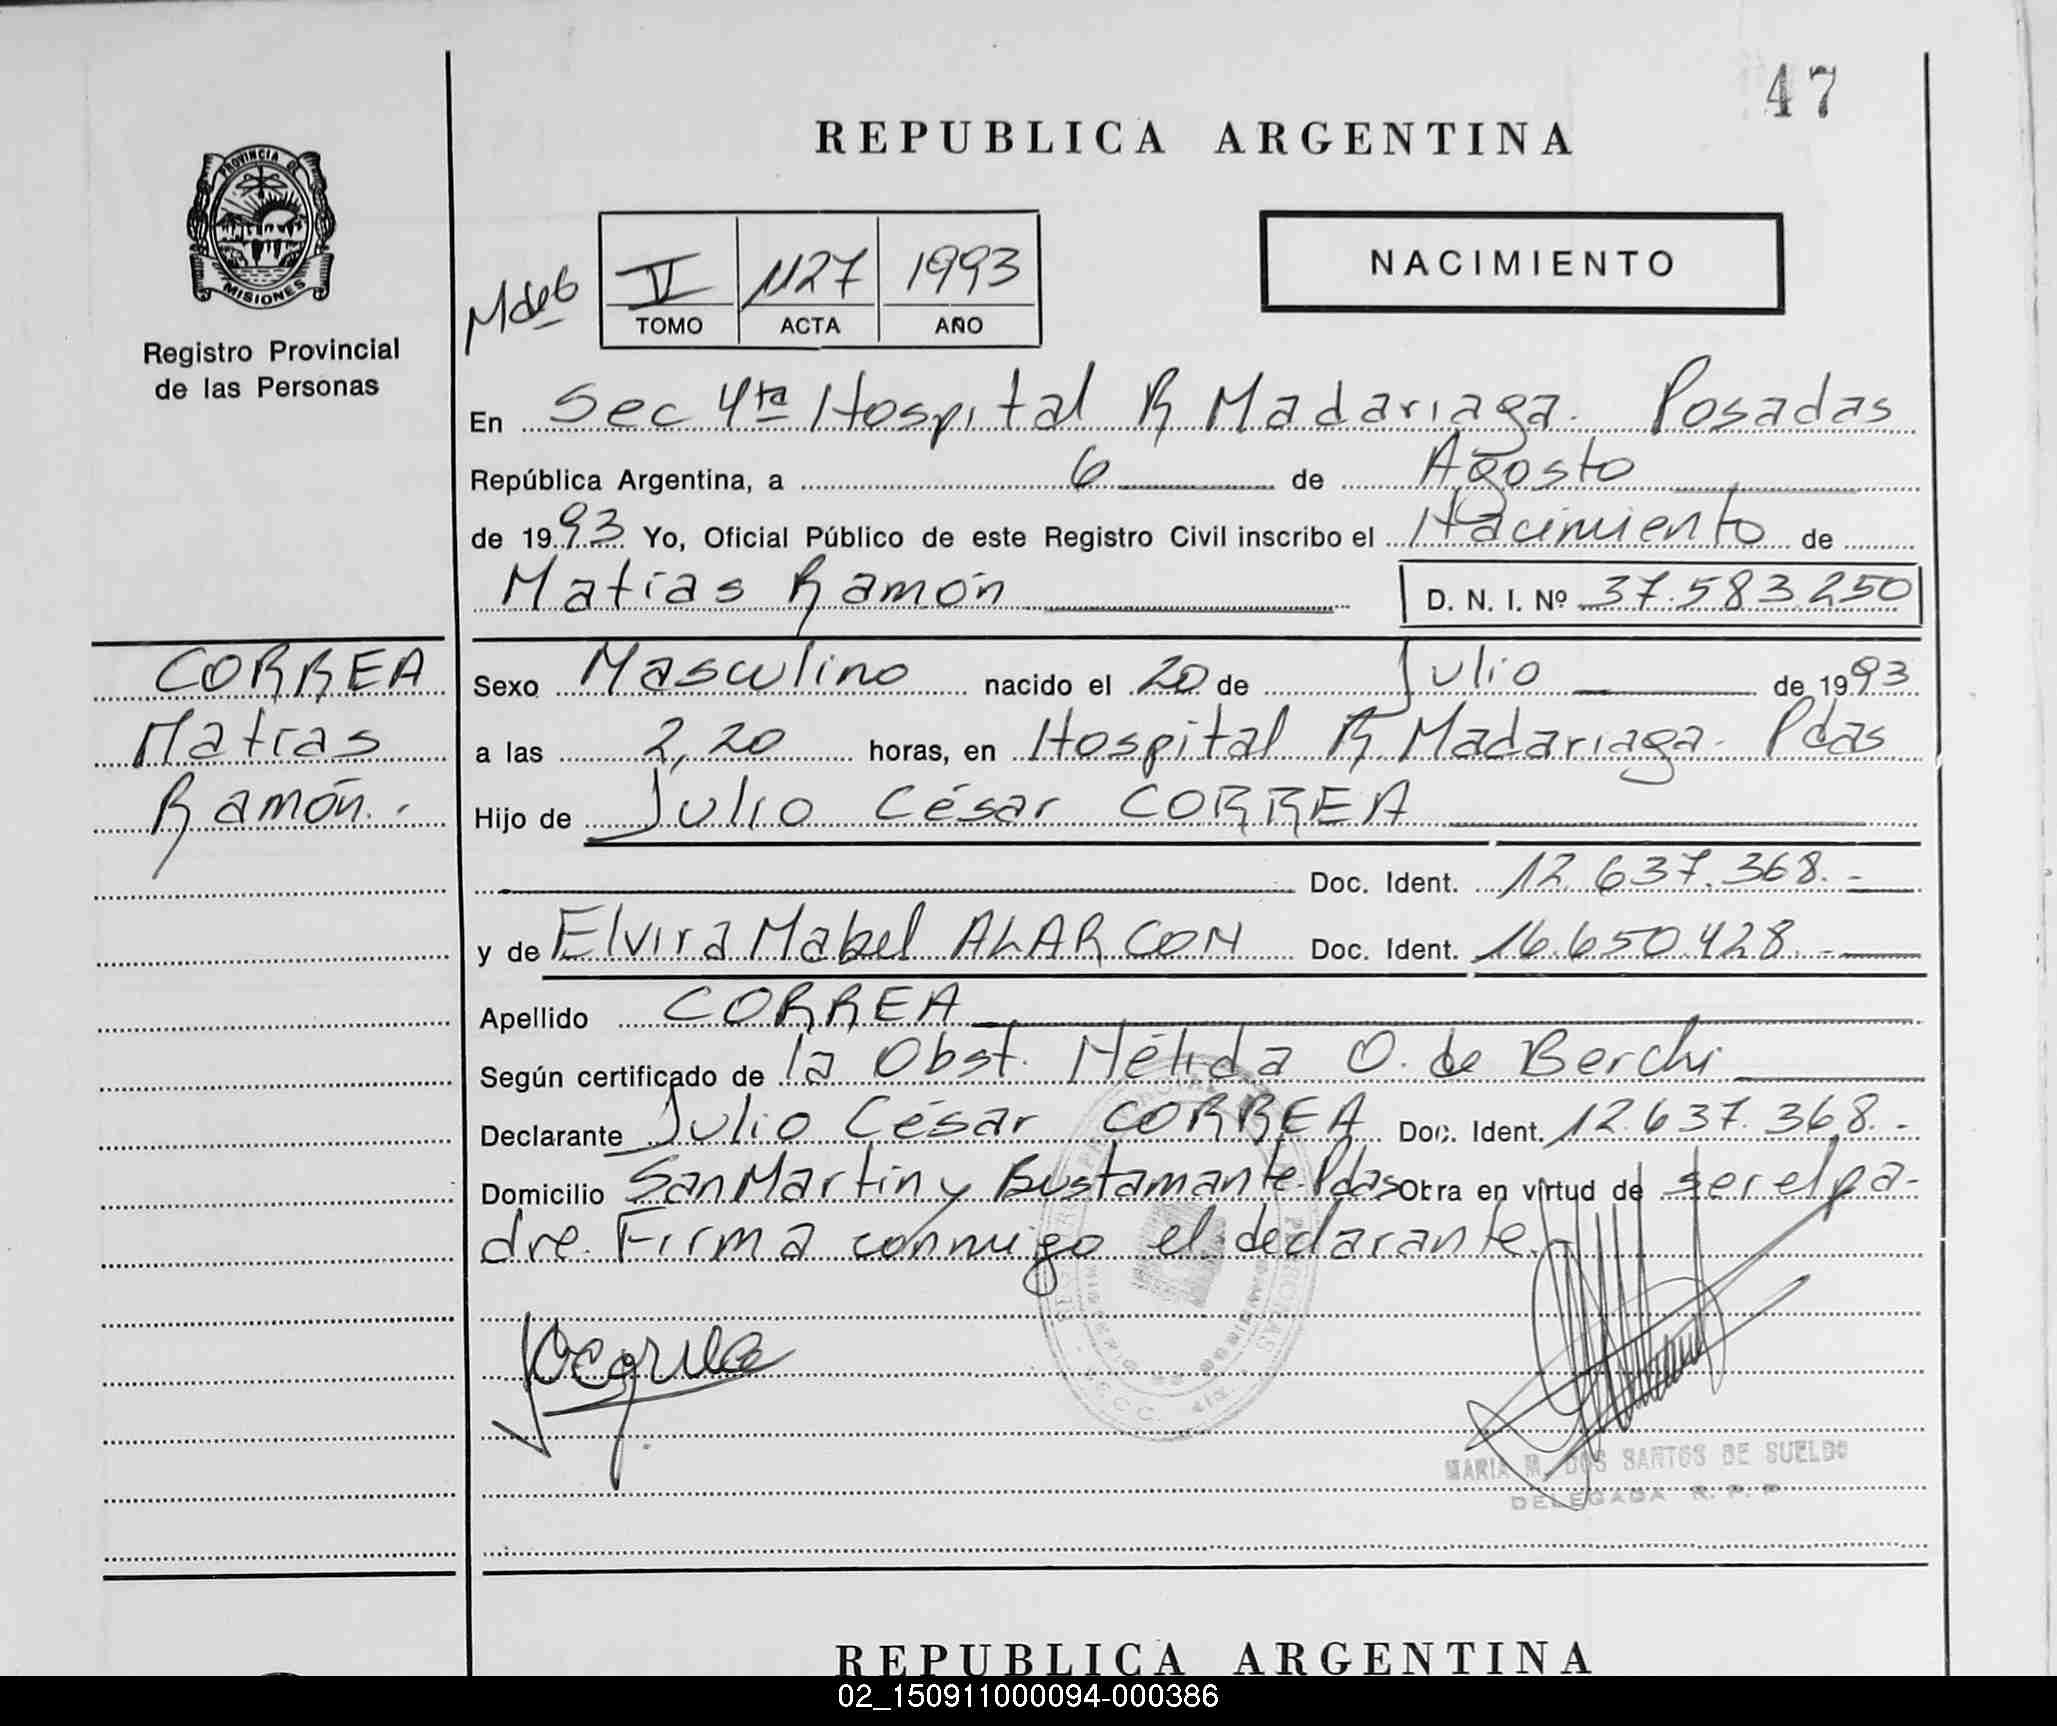 47
REPUBLICA ARGENTINA
PROVINCIA DE
MISIONES
Registro Provincial
de las Personas
V 1127 1993
TOMO ACTA AÑO
NACIMIENTO
En Sec 4ta Hospital R Madariaga. Posadas
República Argentina, a 6 de Agosto
de 1993 Yo, Oficial Público de este Registro Civil inscribo el Nacimiento de
Matías Ramón D. N. I. Nº 37.583.250
CORREA
Matías
Ramón.
Sexo Masculino nacido el 20 de Julio de 1993
a las 2,20 horas, en Hospital R. Madariaga. Pdas
Hijo de Julio César CORREA
Doc. Ident. 12.637.368.-
y de Elvira Mabel ALARCON Doc. Ident. 16.650.428.-
Apellido CORREA
Según certificado de la Obst. Nélida O. de Berchi
Declarante Julio César CORREA Doc. Ident. 12.637.368.-
Domicilio San Martin y Bustamante. Pdas Obra en virtud de ser el pa-
dre. Firma conmigo el declarante.-
MARIA M. DOS SANTOS DE SUELDO
DELEGADA R. P. P
REPUBLICA ARGENTINA
02_150911000094-000386